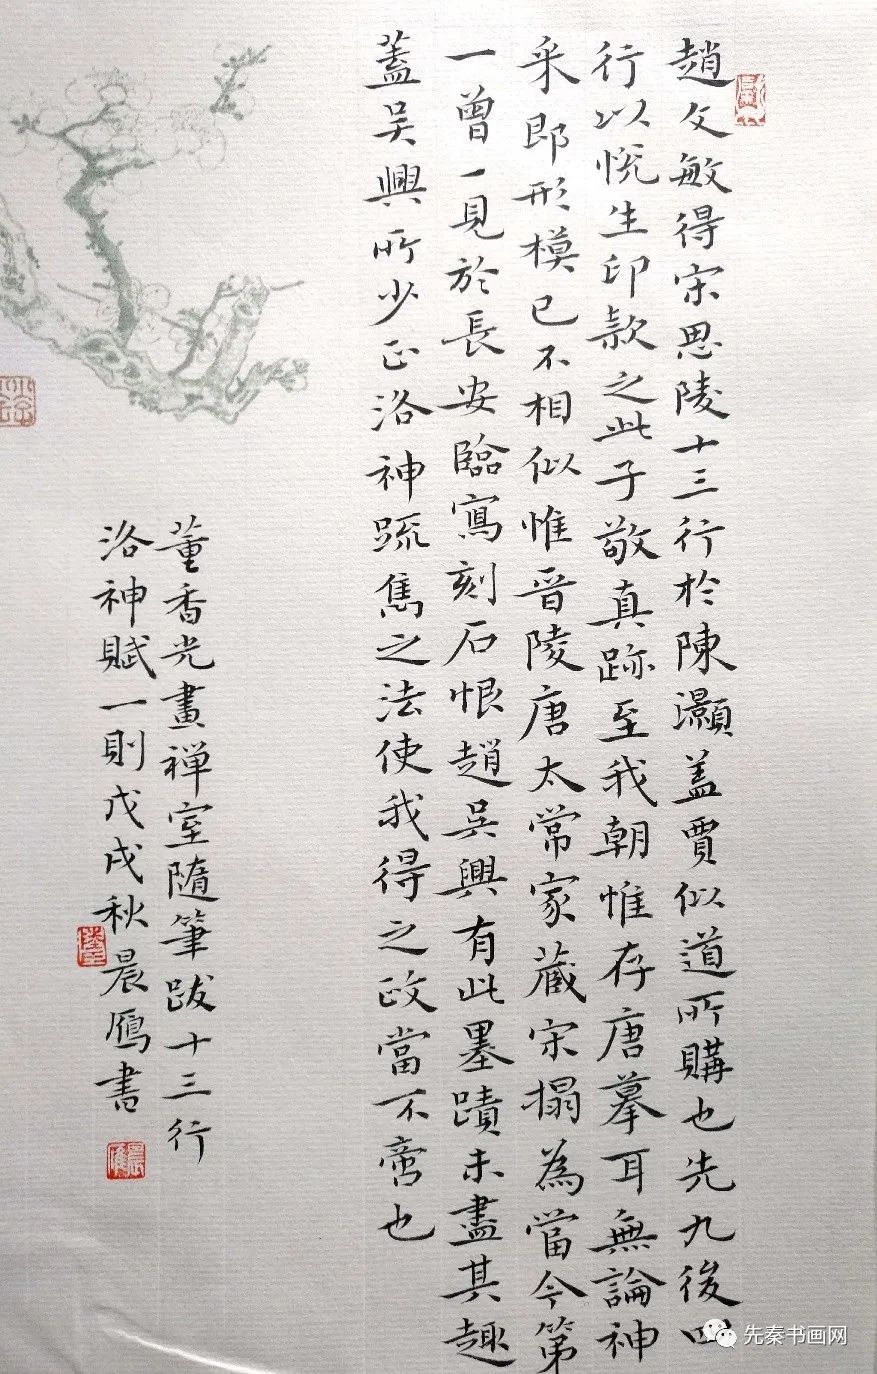 趙文敏得宋思陵十三行於陳灝盖賈似道所購也先九後四
行以悅生印款之此子敬真跡至我朝惟存唐摹耳無論神
采即形模已不相似惟晉陵唐太常家藏宋搨為當今第
一曾一見於長安臨寫刻石恨趙吳興有此墨蹟未盡其趣
蓋吳興所少正洛神疏雋之法使我得之政當不啻也
董香光畫禅室隨筆跋十三行
洛神賦一則戊戌秋晨鴈書
先秦书画网